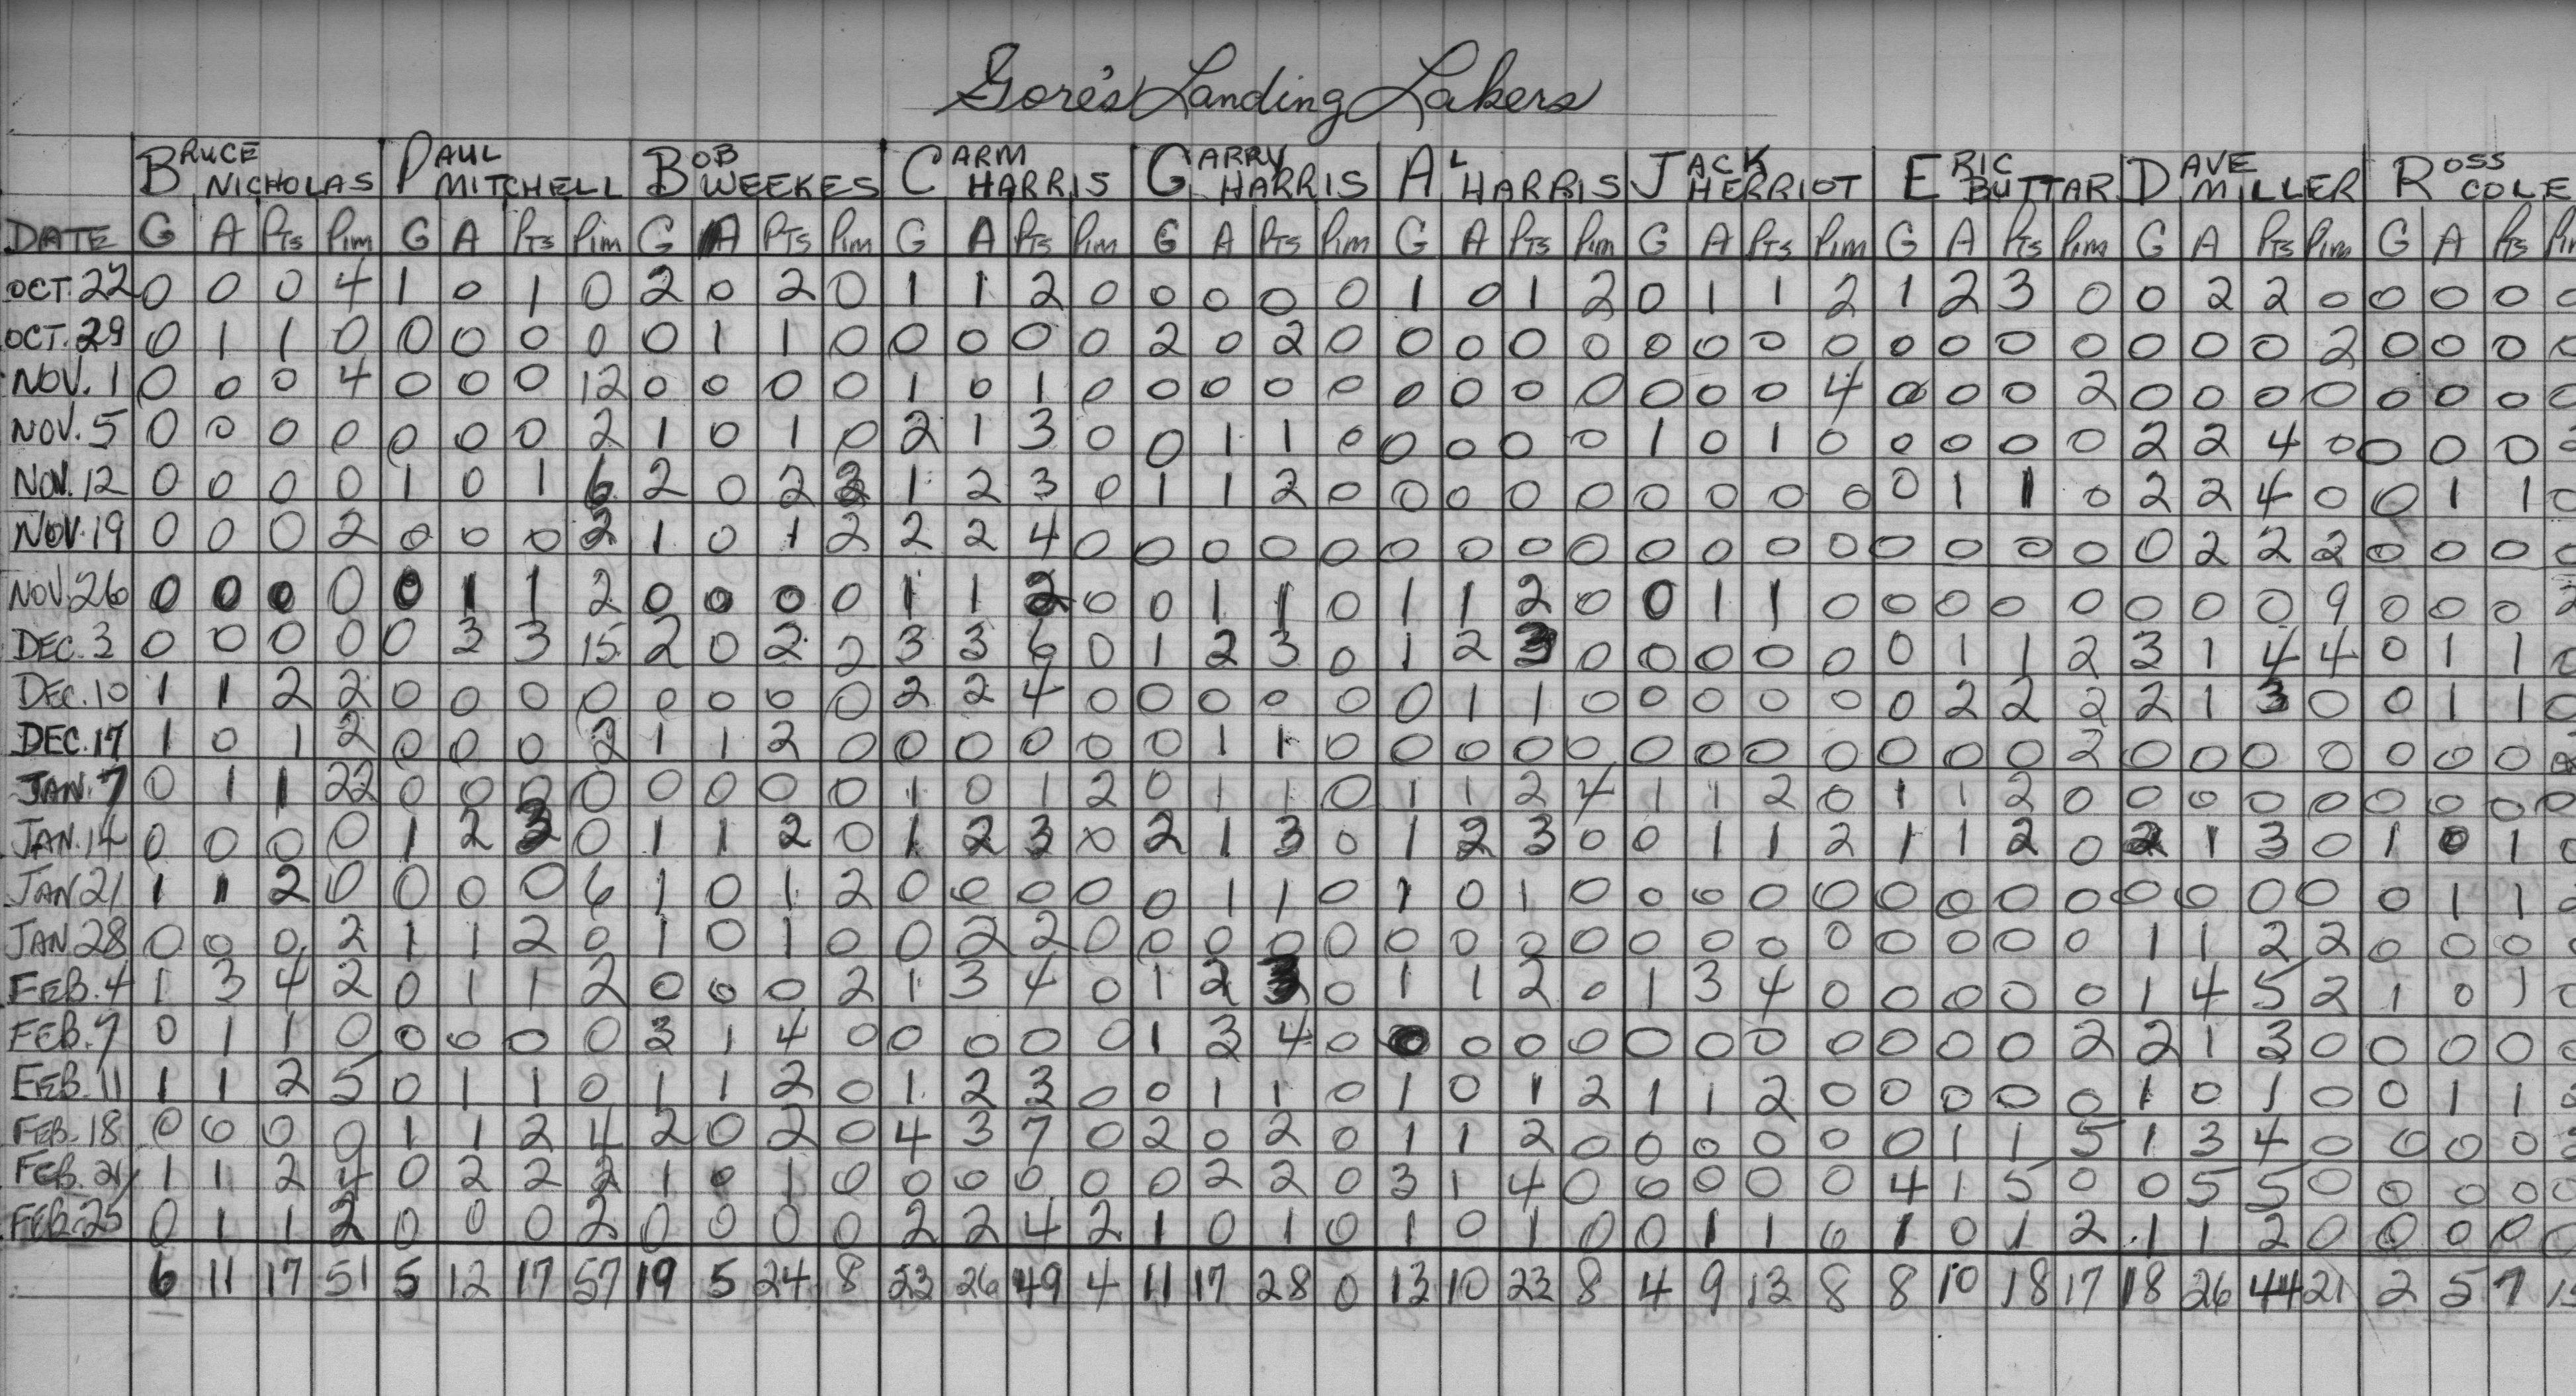 Gore's Landing Lakers
BRUCE NICHOLAS PAUL MITCHELL BOB WEEKES CARM HARRIS GARRY HARRIS AL HARRIS JACK HERRIOT ERIC BUTTAR DAVE MILLER ROSS COLE
DATE G A Pts Pim G A Pts Pim G A Pts Pim G A Pts Pim G A Pts Pim G A Pts Pim G A Pts Pim G A Pts Pim G A Pts Pim G A Pts
OCT. 22 0 0 0 4 1 0 1 0 2 0 2 0 1 1 2 0 0 0 0 0 1 0 1 2 0 1 1 2 1 2 3 0 0 2 2 0 0 0 0
OCT. 29 0 1 1 0 0 0 0 0 0 1 1 0 0 0 0 0 2 0 2 0 0 0 0 0 0 0 0 0 0 0 0 0 0 0 0 2 0 0 0
NOV. 1 0 0 0 4 0 0 0 12 0 0 0 0 1 0 1 0 0 0 0 0 0 0 0 0 0 0 0 4 0 0 0 2 0 0 0 0 0 0 0
NOV. 5 0 0 0 0 0 0 0 2 1 0 1 0 2 1 3 0 0 1 1 0 0 0 0 0 1 0 1 0 0 0 0 0 2 2 4 0 0 0 0
NOV. 12 0 0 0 0 1 0 1 6 2 0 2 2 1 2 3 0 1 1 2 0 0 0 0 0 0 0 0 0 0 1 1 0 2 2 4 0 0 1 1
NOV. 19 0 0 0 2 0 0 0 2 1 0 1 2 2 2 4 0 0 0 0 0 0 0 0 0 0 0 0 0 0 0 0 0 0 2 2 2 0 0 0
NOV. 26 0 0 0 0 0 1 1 2 0 0 0 0 1 1 2 0 0 1 1 0 1 1 2 0 0 1 1 0 0 0 0 0 0 0 0 9 0 0 0
DEC. 3 0 0 0 0 0 3 3 15 2 0 2 2 3 3 6 0 1 2 3 0 1 2 3 0 0 0 0 0 0 1 1 2 3 1 4 4 0 1 1
DEC. 10 1 1 2 2 0 0 0 0 0 0 0 0 2 2 4 0 0 0 0 0 0 1 1 0 0 0 0 0 0 2 2 2 2 1 3 0 0 1 1
DEC. 17 1 0 1 2 0 0 0 2 1 1 2 0 0 0 0 0 0 1 1 0 0 0 0 0 0 0 0 0 0 0 0 2 0 0 0 0 0 0 0
JAN. 7 0 1 1 22 0 0 0 0 0 0 0 0 1 0 1 2 0 1 1 0 1 1 2 4 1 1 2 0 1 1 2 0 0 0 0 0 0 0 0
JAN. 14 0 0 0 0 1 2 3 0 1 1 2 0 1 2 3 0 2 1 3 0 1 2 3 0 0 1 1 2 1 1 2 0 2 1 3 0 1 0 1
JAN 21 1 1 2 0 0 0 0 6 1 0 1 2 0 0 0 0 0 1 1 0 1 0 1 0 0 0 0 0 0 0 0 0 0 0 0 0 0 1 1
JAN. 28 0 0 0 2 1 1 2 0 1 0 1 0 0 2 2 0 0 0 0 0 0 0 0 0 0 0 0 0 0 0 0 0 1 1 2 2 0 0 0
FEB. 4 1 3 4 2 0 1 1 2 0 0 0 2 1 3 4 0 1 2 3 0 1 1 2 0 1 3 4 0 0 0 0 0 1 4 5 2 1 0 1
FEB. 7 0 1 1 0 0 0 0 0 3 1 4 0 0 0 0 0 1 3 4 0 0 0 0 0 0 0 0 0 0 0 0 2 2 1 3 0 0 0 0
FEB. 11 1 1 2 5 0 1 1 0 1 1 2 0 1 2 3 0 0 1 1 0 1 0 1 2 1 1 2 0 0 0 0 0 1 0 1 0 0 1 1
FEB. 18 0 0 0 0 1 1 2 4 2 0 2 0 4 3 7 0 2 0 2 0 1 1 2 0 0 0 0 0 0 1 1 5 1 3 4 0 0 0 0
FEB. 21 1 1 2 4 0 2 2 2 1 0 1 0 0 0 0 0 0 2 2 0 3 1 4 0 0 0 0 0 4 1 5 0 0 5 5 0 0 0 0
FEB. 25 0 1 1 2 0 0 0 2 0 0 0 0 2 2 4 2 1 0 1 0 1 0 1 0 0 1 1 0 1 0 1 2 1 1 2 0 0 0 0
6 11 17 51 5 12 17 57 19 5 24 8 23 26 49 4 11 17 28 0 13 10 23 8 4 9 13 8 8 10 18 17 18 26 44 21 2 5 7